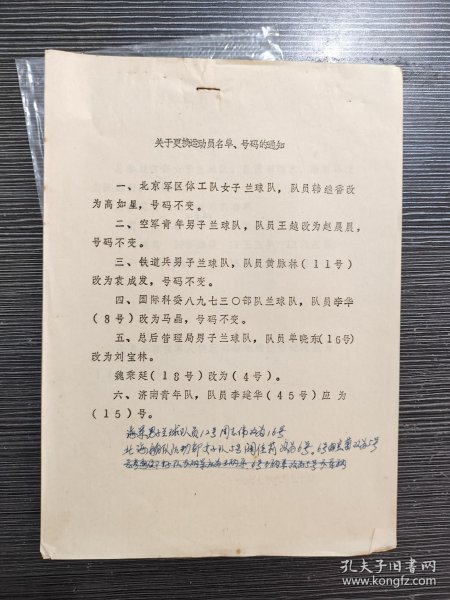 关于更换运动员名单、号码的通知
一、北京军区体工队女子兰球队，队员韩继香改
为高如星，号码不变。
二、空军青年男子兰球队，队员王越改为赵晨晨，
号码不变。
三、铁道兵男子兰球队，队员黄脉林（11号）
改为袁成发，号码不变。
四、国际科委八九七三〇部队兰球队，队员李华
（8号）改为马晶，号码不变。
五、总后管理局男子兰球队，队员单晓东（16号）
改为刘宝林。
魏乘延（18号）改为（4号）。
六、济南青年队，队员李建华（45号）应 为
（15）号。
球队员12号周志伟改为16号
孔夫子旧书网
www.kongfz.com